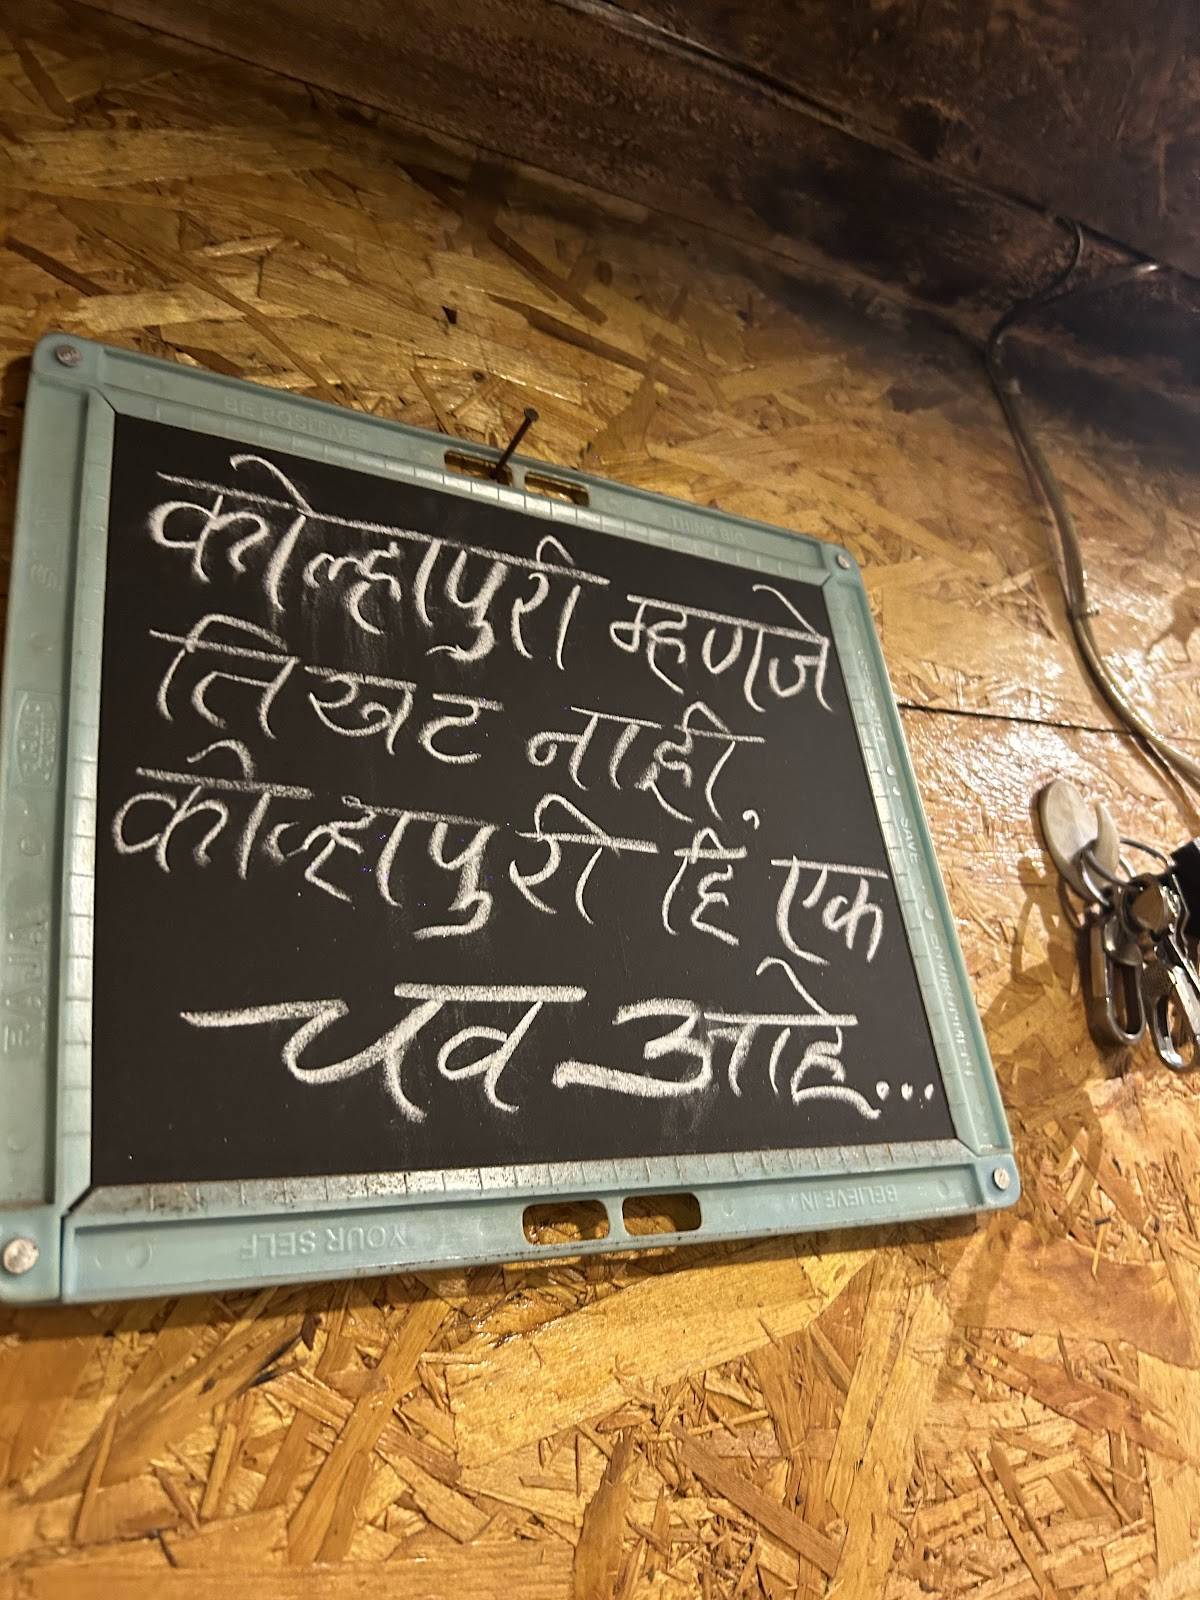 BE POSITIVE
THINK BIG
कोल्हापुरी म्हणजे
तिखट नाही,
कोल्हापुरी हि एक
चव आहे...
SAVE
ENVIRONMENT
RAJA
BELIEVE IN
YOUR SELF